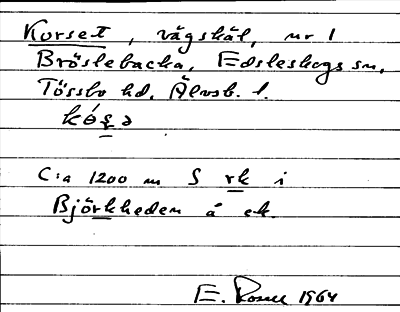 Korset, vägskäl, nr 1
Bröslebacka, Edsleskogs sn,
Tössbo hd, Älvsb. l.
kó̱ṣə
C:a 1200 m S rk i
Björkheden å ek.
E. 1964